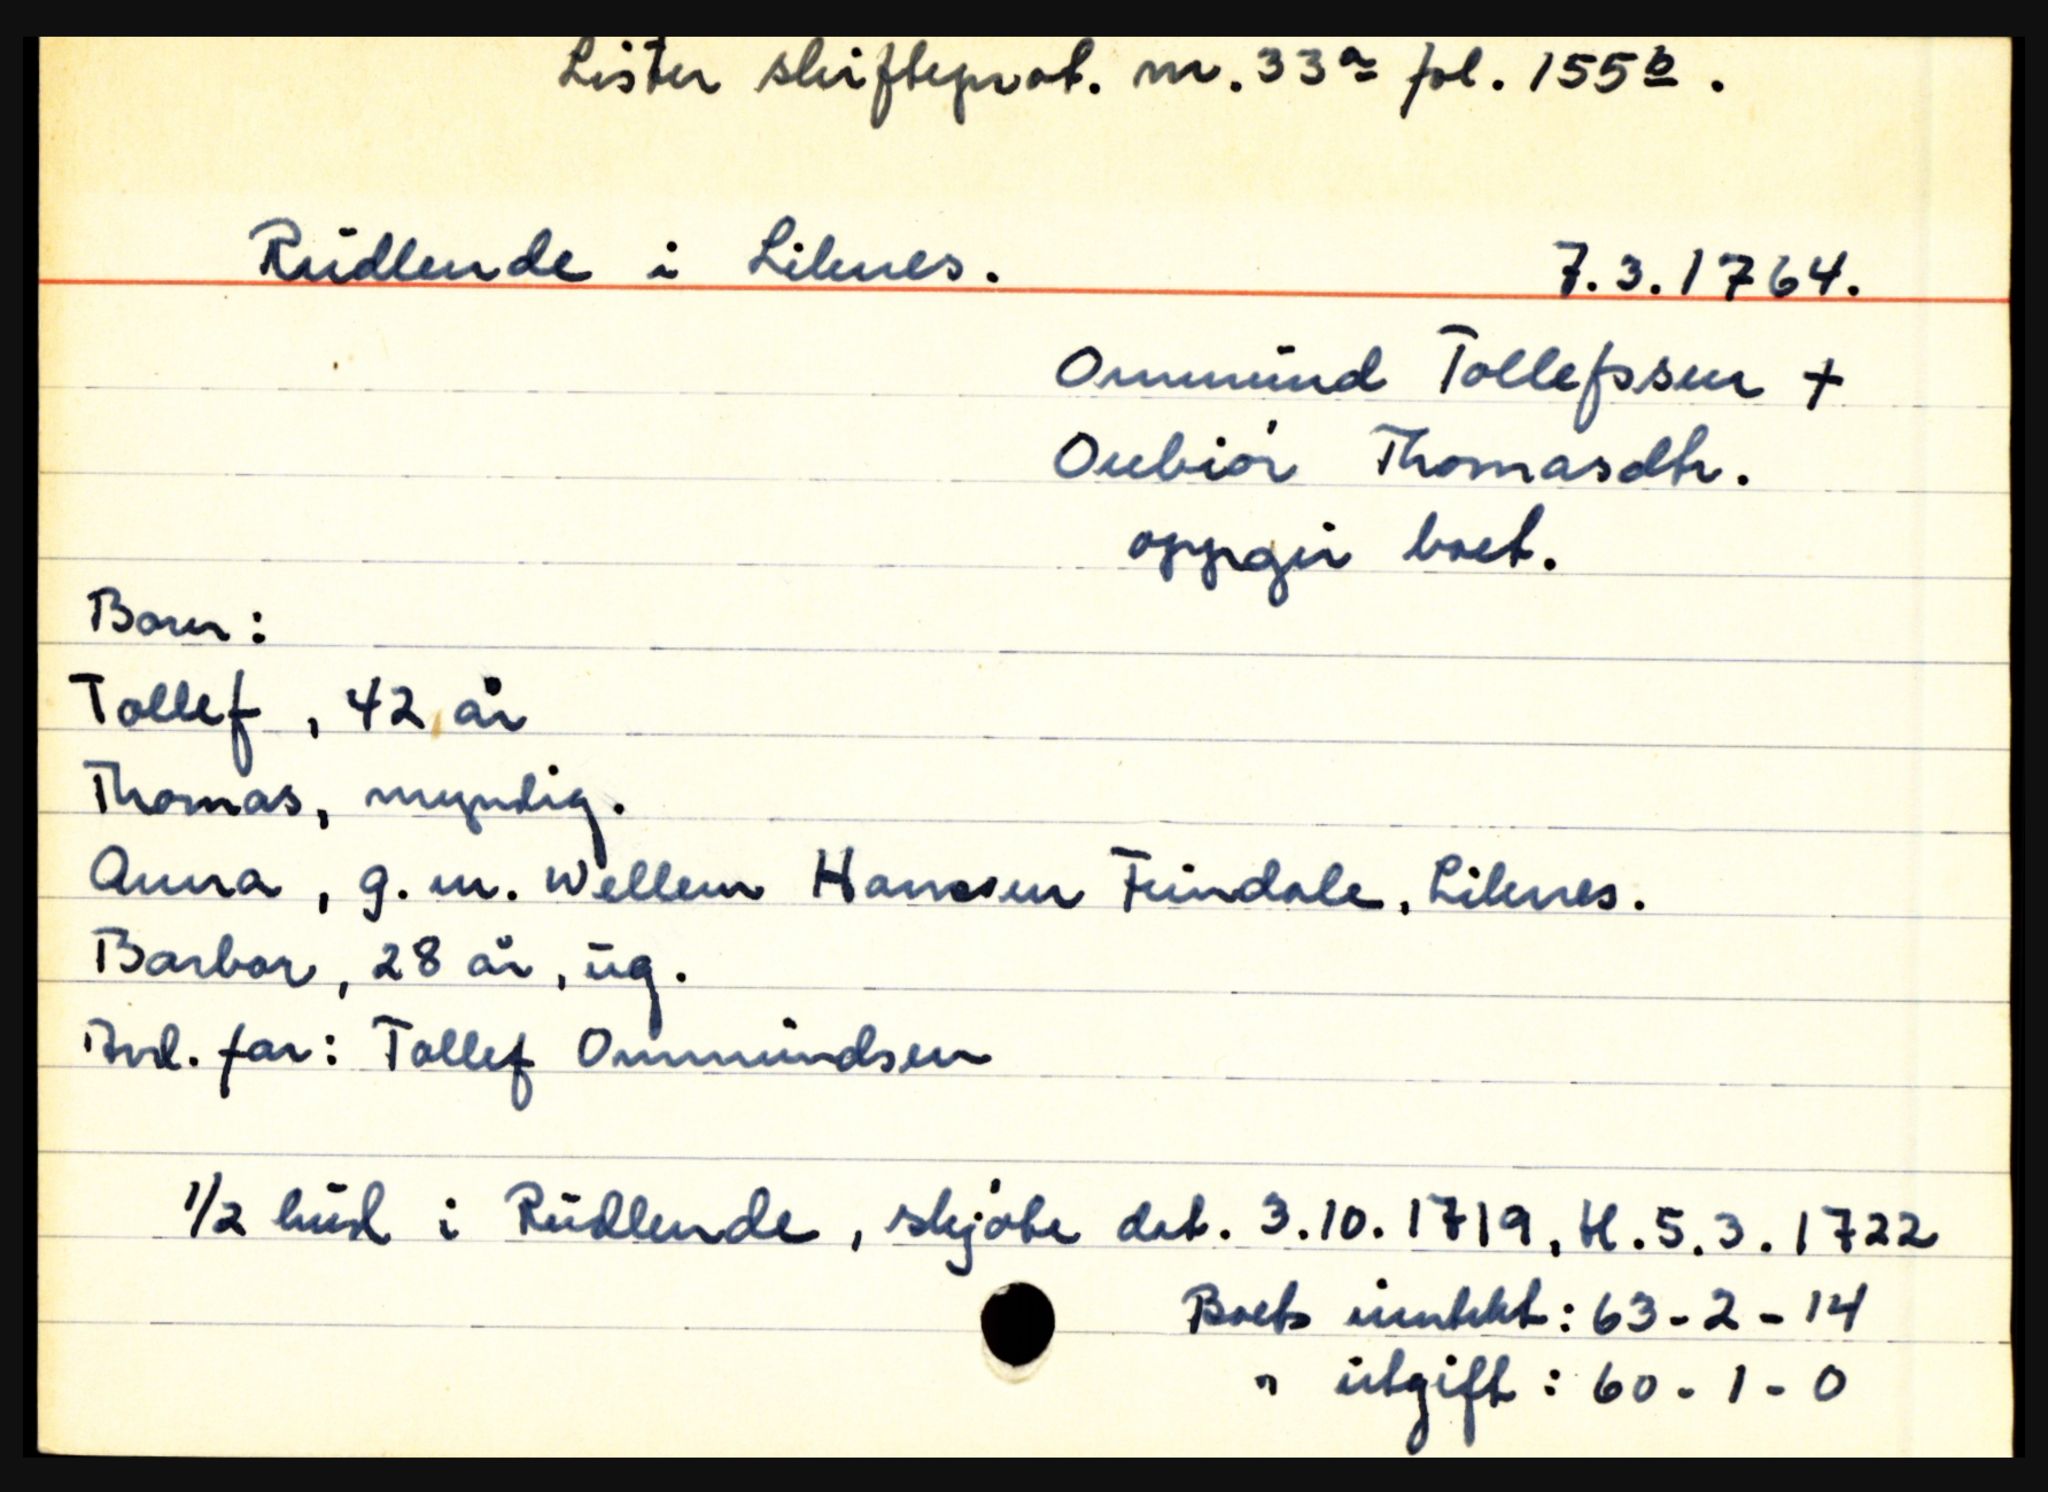 Lister skifteprot. nr. 33a fol. 155b.
Rudlende i Liknes. 7.3.1764.
Ommund Tollefssen +
Oubiór Thomasdtr.
oppgir boet.
Born:
Tollef, 42 år
Thomas, myndig.
Anna, g. m. Wellem Hanssen Fundale, Liknes.
Barbor, 28 år, ug.
Avl. far: Tollef Ommundsen
1/2 hud i Rudlende, skjøte dat. 3.10.1719, tl. 5.3.1722
Boets inntekt: 63-2-14
" utgift: 60-1-0